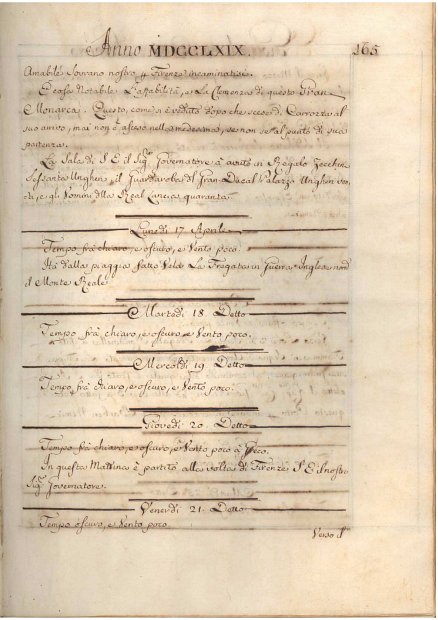 Anno MDCCLXIX. 165
Amabile Sovrano nostro p Firenze incaminatisi.
E cosa Notabile L'affabilità, e La Clemenza di questo Gran
Monarca. Questo, come si è veduto dopo che scese di Carrozza al
suo arrivo, mai non è asceso nella medesima, se non se al punto di sua
partenza.
La Sala di S. E. il Sig. Governatore à avuto in Regalo Zecchini
Sessanta Ungheri, il Guardaroba del Gran-Ducal Palazzo Ungheri
e gli Uomini della Real Lancia quaranta.
Lunedì 17 Aprile
Tempo frà chiaro, e oscuro, e Vento poco.
Hà dalla piaggia fatto Vela La Fregata in Guerra Inglese nom
il Monte Reale
Martedì 18 Detto
Tempo frà chiaro, e oscuro, e Vento poco.
Mercoldì 19 Detto
Tempo frà chiaro, e oscuro, e Vento poco.
Giovedì 20 Detto
Tempo frà chiaro, e oscuro, e Vento poco à Poco.
In questa Mattina è partito alla volta di Firenze S. E. il nostro
Sig. Governatore.
Venerdì 21 Detto
Tempo oscuro, e Vento poco
Verso